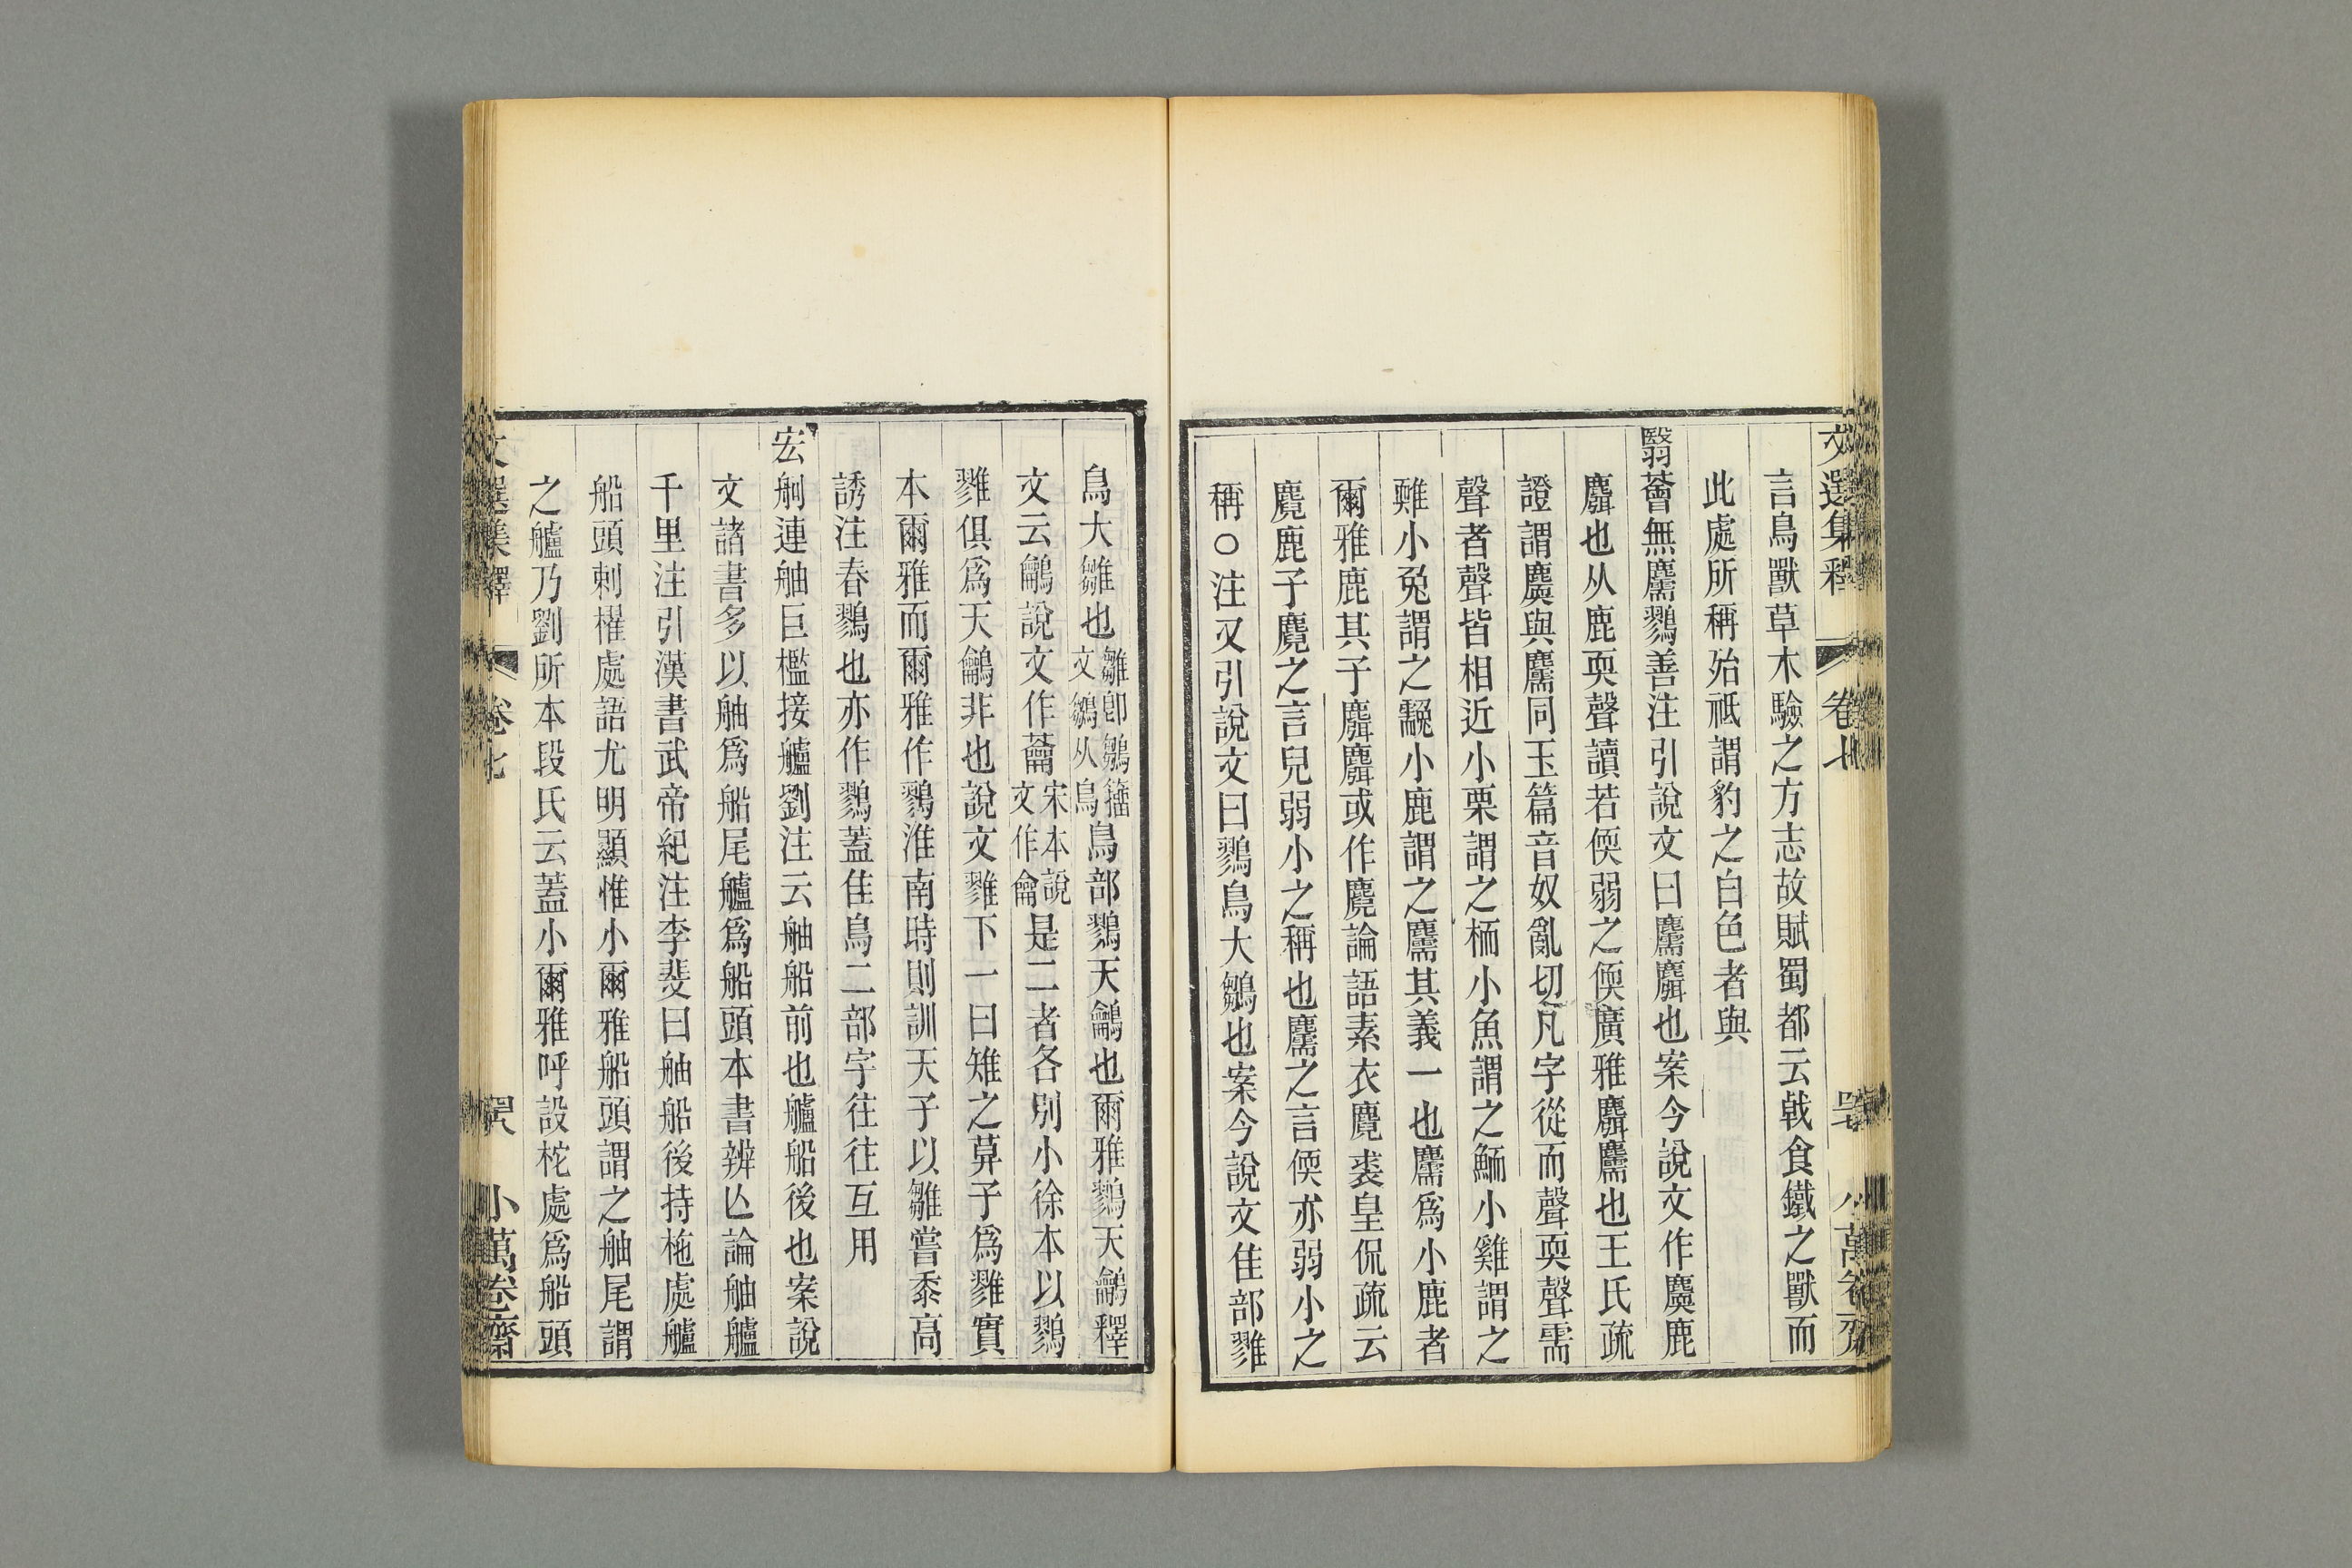 文選集釋 卷七 罕 小萬卷齋
言鳥獸草木驗之方志故賦蜀都云戟食鐵之獸而
此處所稱殆祗謂豹之白色者與
翳薈無麡鷚善注引說文曰麡麛也案今說文作麌鹿
麛也从鹿耎聲讀若偄弱之偄廣雅麛麡也王氏疏
證謂麌與麡同玉篇音奴亂切凡字從而聲耎聲需
聲者聲皆相近小栗謂之栭小魚謂之鮞小雞謂之
㜨小兔謂之䨲小鹿謂之麡其義一也麡爲小鹿者
爾雅鹿其子麛麛或作麑論語素衣麑裘皇侃疏云
麑鹿子麑之言兒弱小之稱也麡之言偄亦弱小之
稱○注又引說文曰鷚鳥大鶵也案今說文隹部雡
鳥大雛也雛卽鶵籀文鶵从鳥鳥部鷚天鸙也爾雅鷚天鸙釋
文云鸙說文作蘥宋本說文作龠是二者各別小徐本以鷚
雡俱爲天鸙非也說文雡下一曰雉之莫子爲雡實
本爾雅而爾雅作鷚淮南時則訓天子以雛嘗黍高
誘注春鷚也亦作鷚蓋隹鳥二部字往往互用
宏舸連舳巨檻接艫劉注云舳船前也艫船後也案說
文諸書多以舳爲船尾艫爲船頭本書辨亾論舳艫
千里注引漢書武帝紀注李斐曰舳船後持柂處艫
船頭刺櫂處語尤明顯惟小爾雅船頭謂之舳尾謂
之艫乃劉所本段氏云蓋小爾雅呼設柁處爲船頭
文選集釋 卷七 小萬卷齋